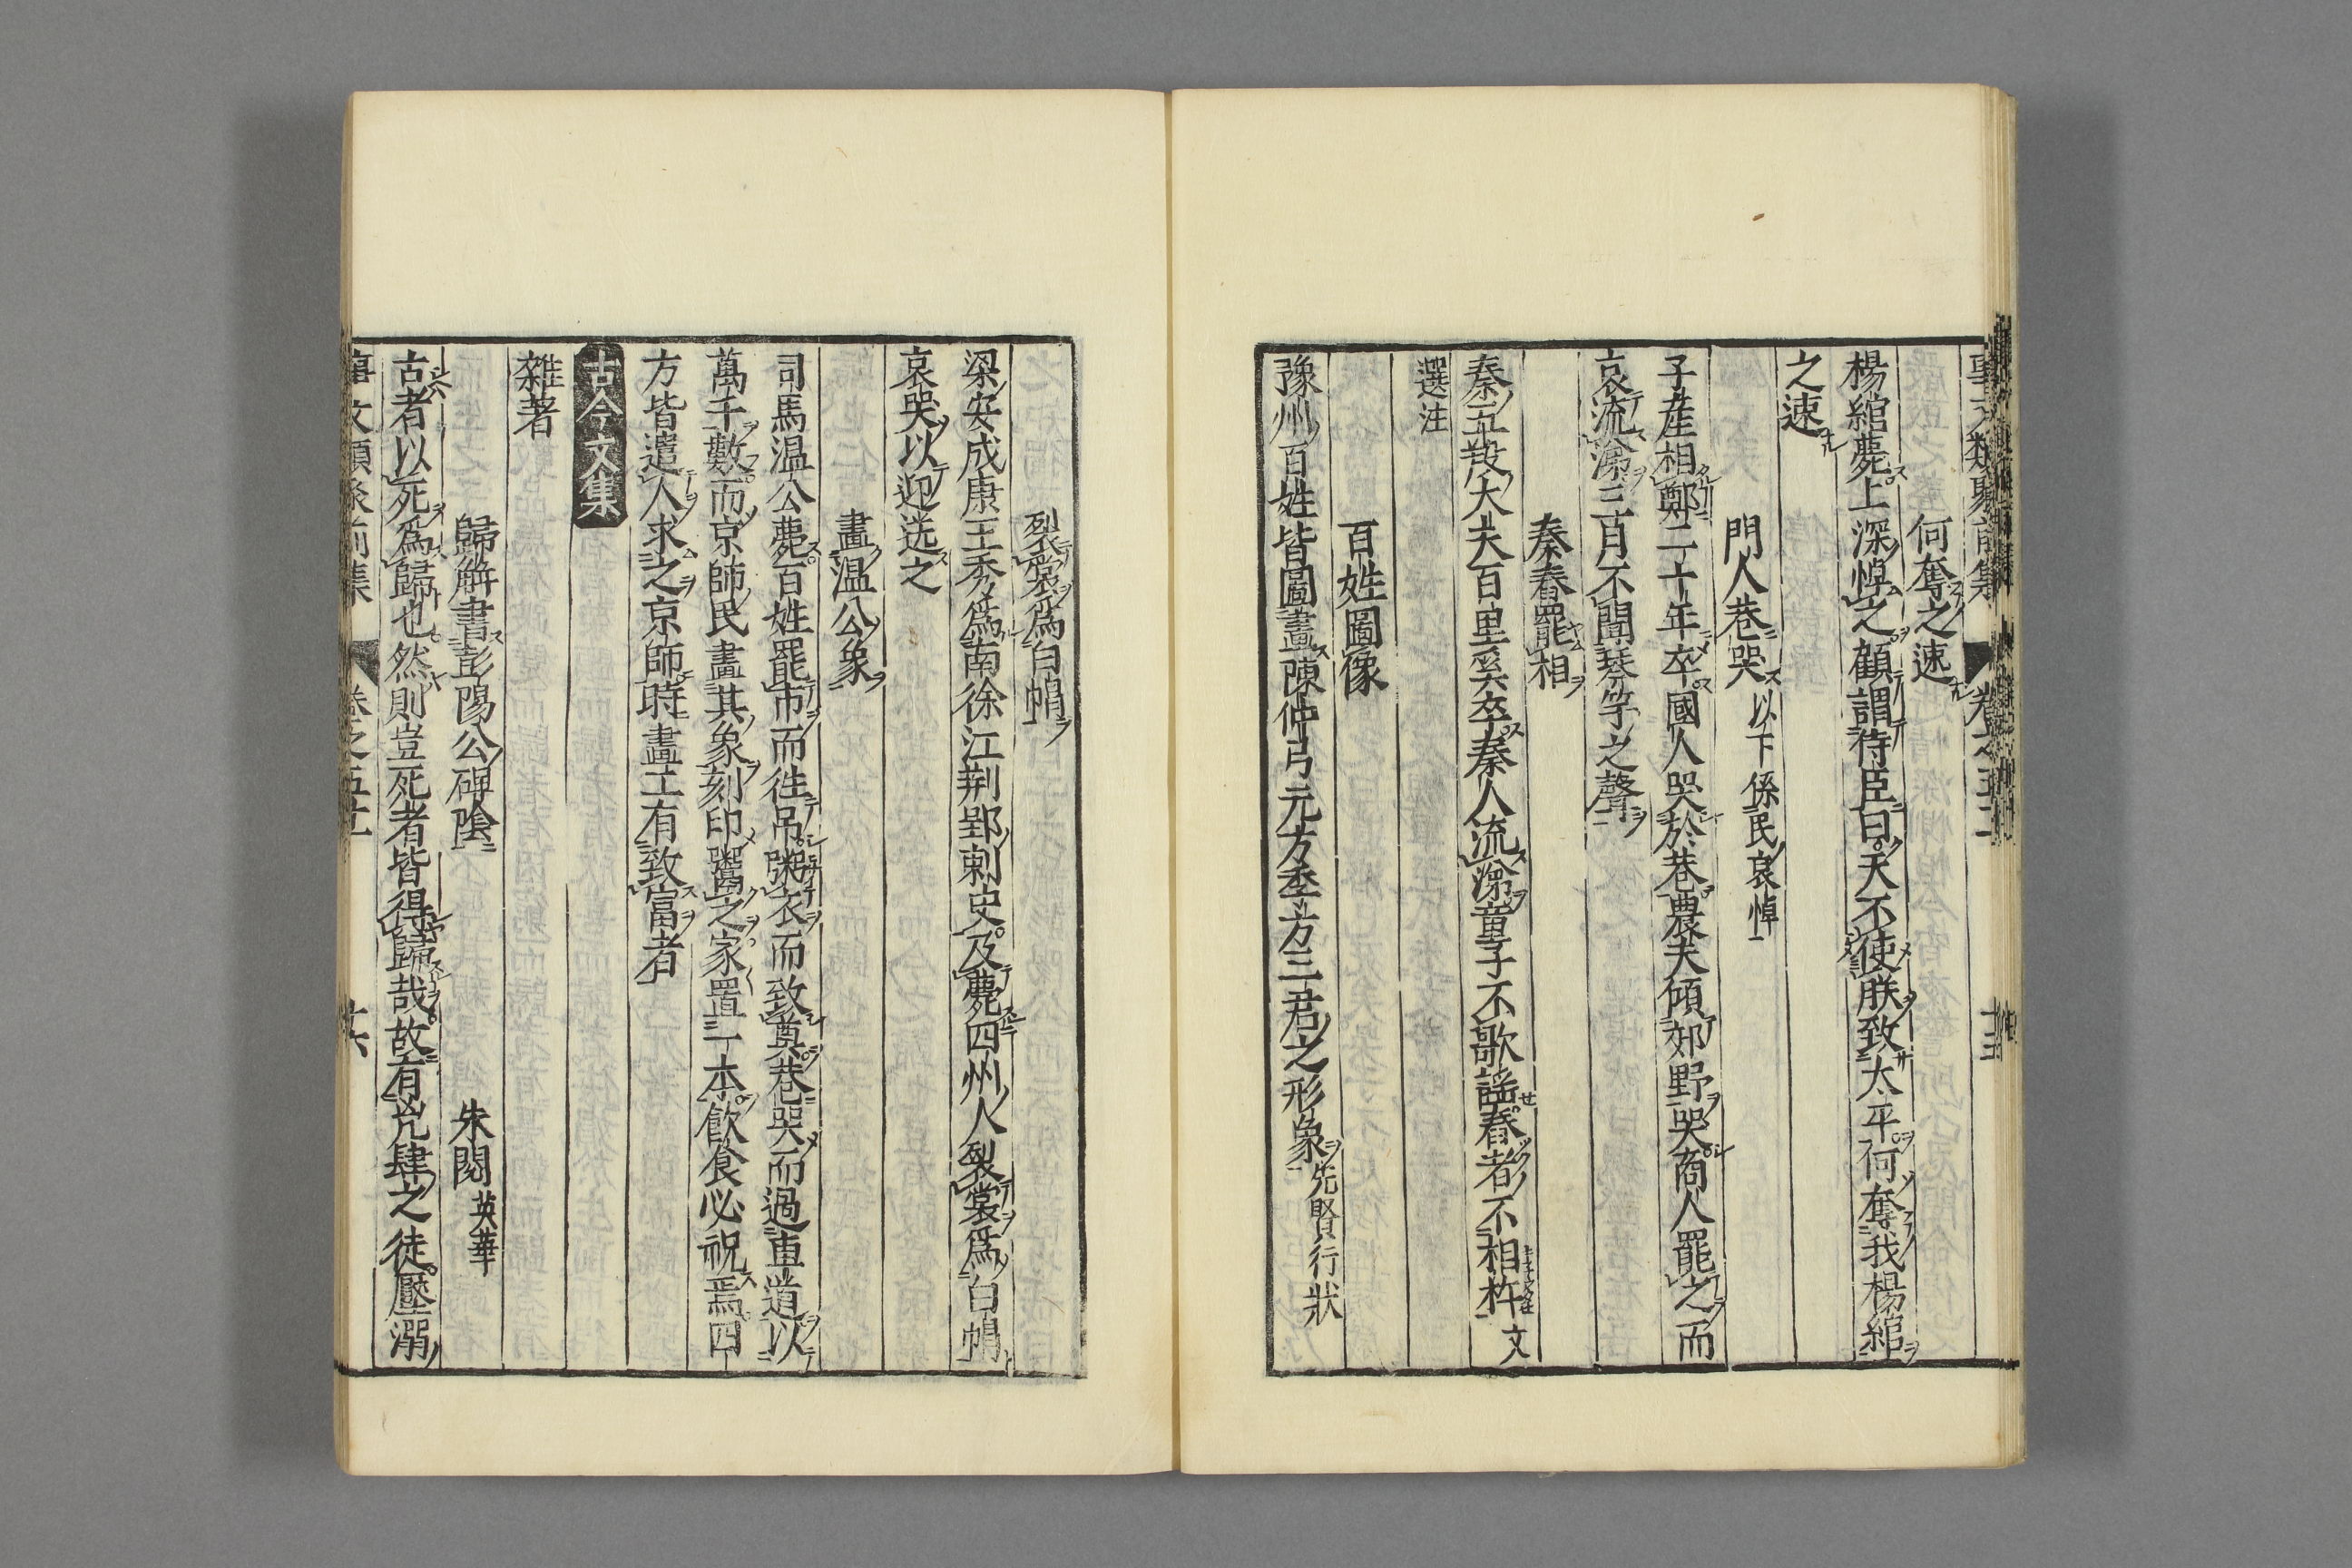 何奪之速
楊綰薨上深悼之顧謂待臣曰天不使朕致太平何奪我楊綰
之速
門人巷哭以下係民哀悼
子產相鄭二十年卒國人哭於巷農夫傾郊野哭商人罷之而
哀流涕三月不聞琴竽之聲
秦舂罷相
秦五羖大夫百里奚卒秦人流涕童子不歌謠舂者不相杵文
選注
百姓圖像
豫州百姓皆圖畫陳仲弓元方季方三君之形象先賢行狀
裂裳為白帽
梁安成康王秀為南徐江荆郢刺史及薨四州人裂裳為白帽
哀哭以迎送之
畫溫公象
司馬溫公薨百姓罷市而往吊粥衣而致奠巷哭而過車道以
萬千數而京師民畫其象刻印鬻之家置一本飲食必祝焉四
方皆遣人求之京師時畫工有致富者
古今文集
雜著
歸解書彭陽公碑陰　朱閱英華
古者以死為歸也然則豈死者皆得歸哉故有兇肆之徒壓溺